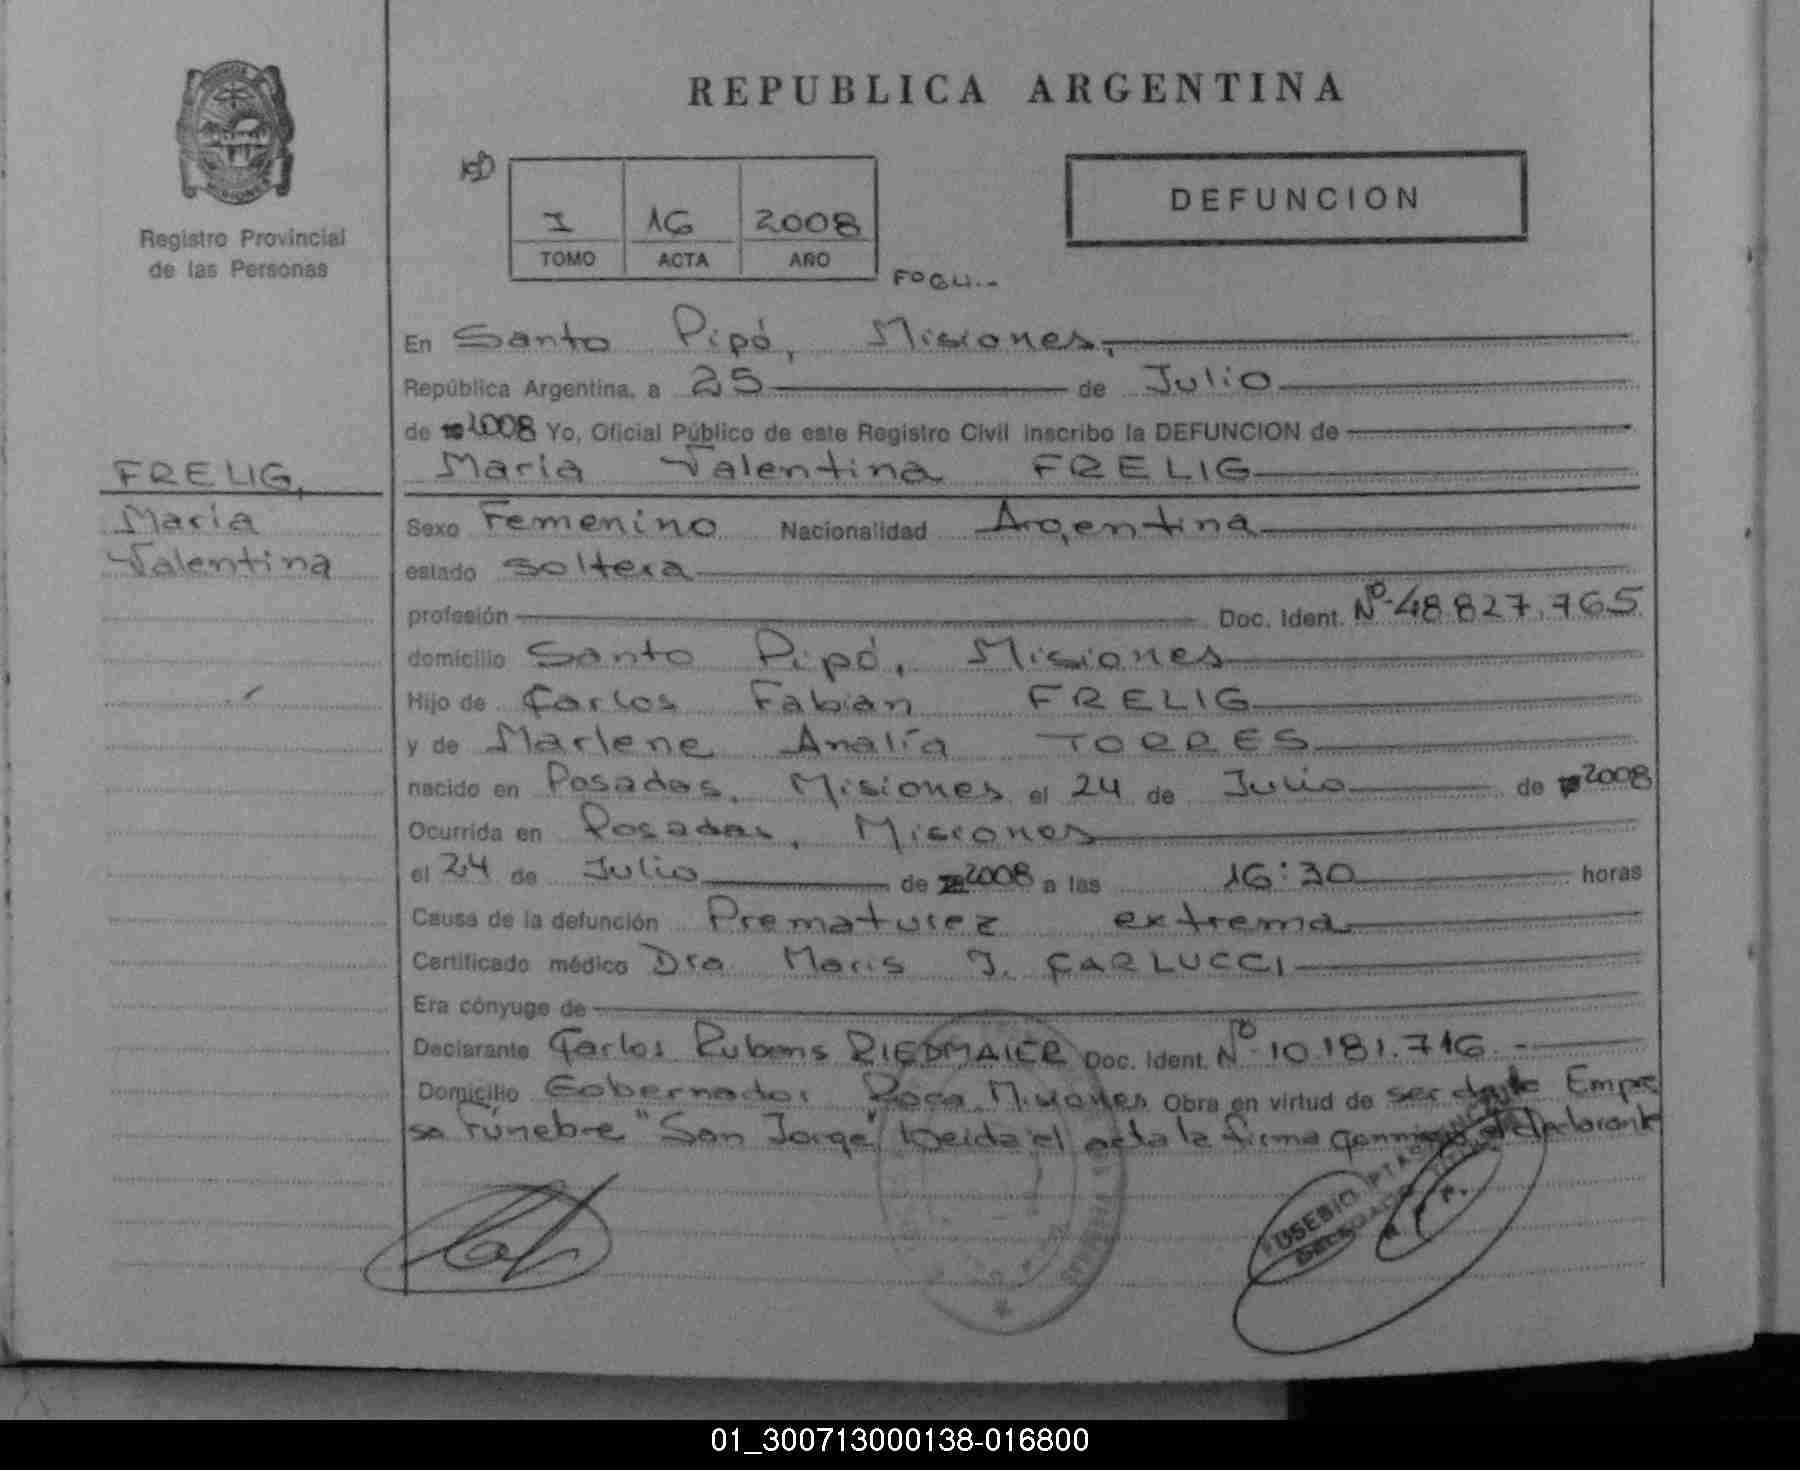 REPUBLICA ARGENTINA
DEFUNCION
I 16 2008
TOMO ACTA AÑO
Fº 64..-
Registro Provincial
de las Personas
FRELIG,
María
Valentina
En Santo Pipó, Misiones,
República Argentina, a 25 de Julio
de 2008 Yo, Oficial Público de este Registro Civil inscribo la DEFUNCION de
María Valentina FRELIG
Sexo Femenino Nacionalidad Argentina
estado soltera
profesión Doc. Ident. Nº-48.827.765
domicilio Santo Pipó, Misiones
Hijo de Carlos Fabian FRELIG
y de Marlene Analía TORRES
nacido en Posadas, Misiones el 24 de Julio de 2008
Ocurrida en Posadas, Misiones
el 24 de Julio de 2008 a las 16:30 horas
Causa de la defunción Prematurez extrema
Certificado médico Dra Maris J. CARLUCCI
Era cónyuge de
Declarante Carlos Rubens RIEDMAIER Doc. Ident. Nº-10.181.716.-
Domicilio Gobernador Roca, Misiones Obra en virtud de ser de Empre
sa Fúnebre "San Jorge" Leida el acta la firma conmigo el declarante
EUSEBIO
01_300713000138-016800